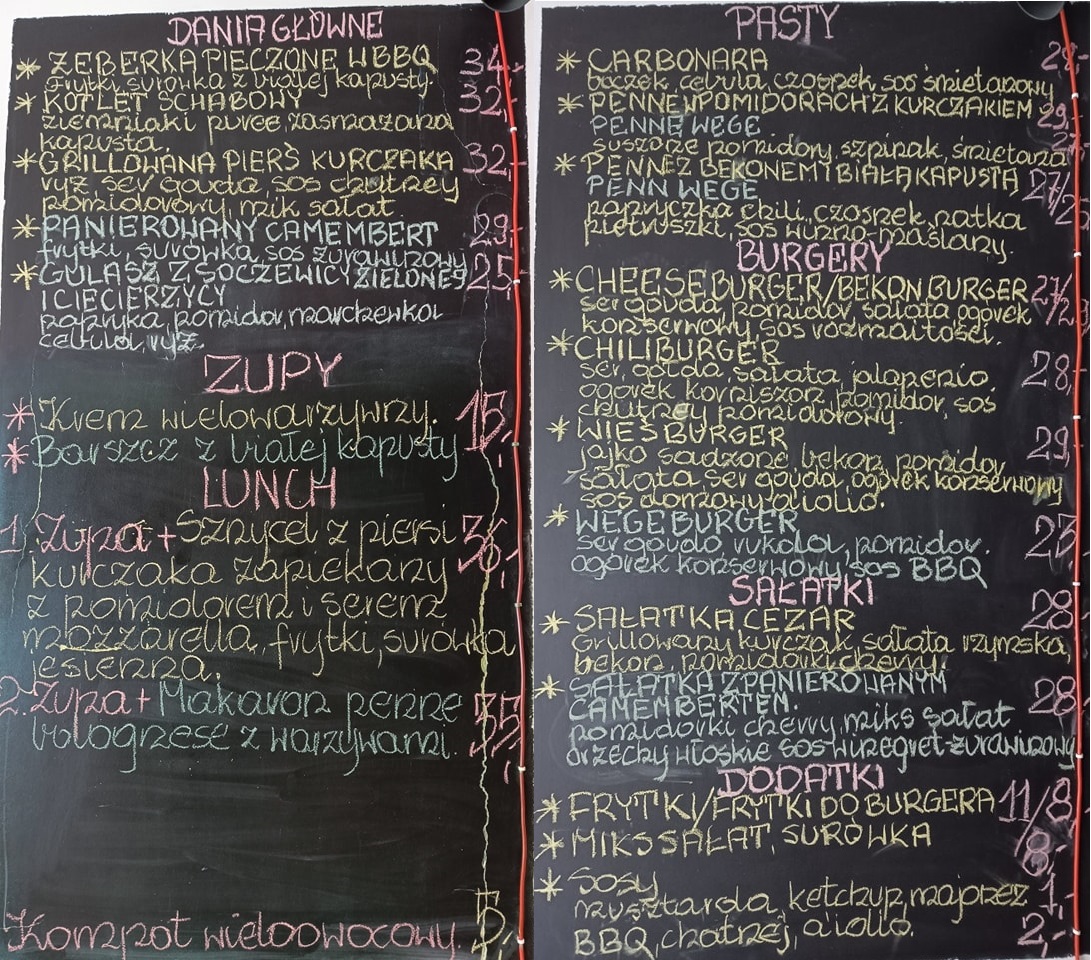 DANIA GŁÓWNE
* ŻEBERKA PIECZONE W BBQ 34,-
frytki, surówka z białej kapusty
* KOTLET SCHABOWY 32,-
ziemniaki puree, zasmażana
kapusta.
* GRILLOWANA PIERŚ KURCZAKA 32,-
ryż, ser gouda, sos chutney
pomidorowy, mik sałat
* PANIEROWANY CAMEMBERT 29,-
frytki, surówka, sos żurawinowy
* GULASZ Z SOCZEWICY ZIELONEJ 25,-
I CIECIERZYCY
papryka, pomidor, marchewka
cebula, ryż.
ZUPY
* Krem wielowarzywny. 15,-
* Barszcz z białej kapusty
LUNCH
1. Zupa + Sznycel z piersi 36,-
kurczaka zapiekany
z pomidorem i serem
mozzarella, frytki, surówka
jesienna.
2. Zupa + Makaron penne 35,-
bolognese z warzywami.
Kompot wieloowocowy. 5,-
PASTY
* CARBONARA
boczek, cebula, czosnek, sos śmietanowy
* PENNE W POMIDORACH Z KURCZAKIEM 29,-
PENNE WEGE
suszone pomidory, szpinak, śmietana
* PENNE Z BEKONEM I BIAŁĄ KAPUSTĄ 27/
PENN WEGE
papryczka chili, czosnek, natka
pietruszki, sos winno-maślany.
BURGERY
* CHEESEBURGER/BEKON BURGER 27/
ser gouda, pomidor, sałata ogórek
konserwowy, sos rozmaitości.
* CHILIBURGER 28,-
ser gouda, sałata, jalapenio,
ogórek korniszon, pomidor, sos
chutney pomidorowy.
* WIEŚBURGER 29
jajko sadzone, bekon, pomidor
sałata, ser gouda, ogórek konserwowy
sos domowy aiolio.
* WEGEBURGER
ser gouda rukola, pomidor.
ogórek konserwowy, sos BBQ
SAŁATKI
* SAŁATKA CEZAR 28
grillowany kurczak, sałata rzymska,
bekon, pomidorki cherry.
* SAŁATKA Z PANIEROWANYM 28
CAMEMBERTEM.
pomidorki cherry, miks sałat
orzechy włoskie sos winegret-żurawinowy
DODATKI
* FRYTKI/FRYTKI DO BURGERA 11/8
* MIKS SAŁAT, SURÓWKA 8,-
* Sosy
musztarda, ketchup, majonez 1,-
BBQ, chatnej, aiolio. 2,-